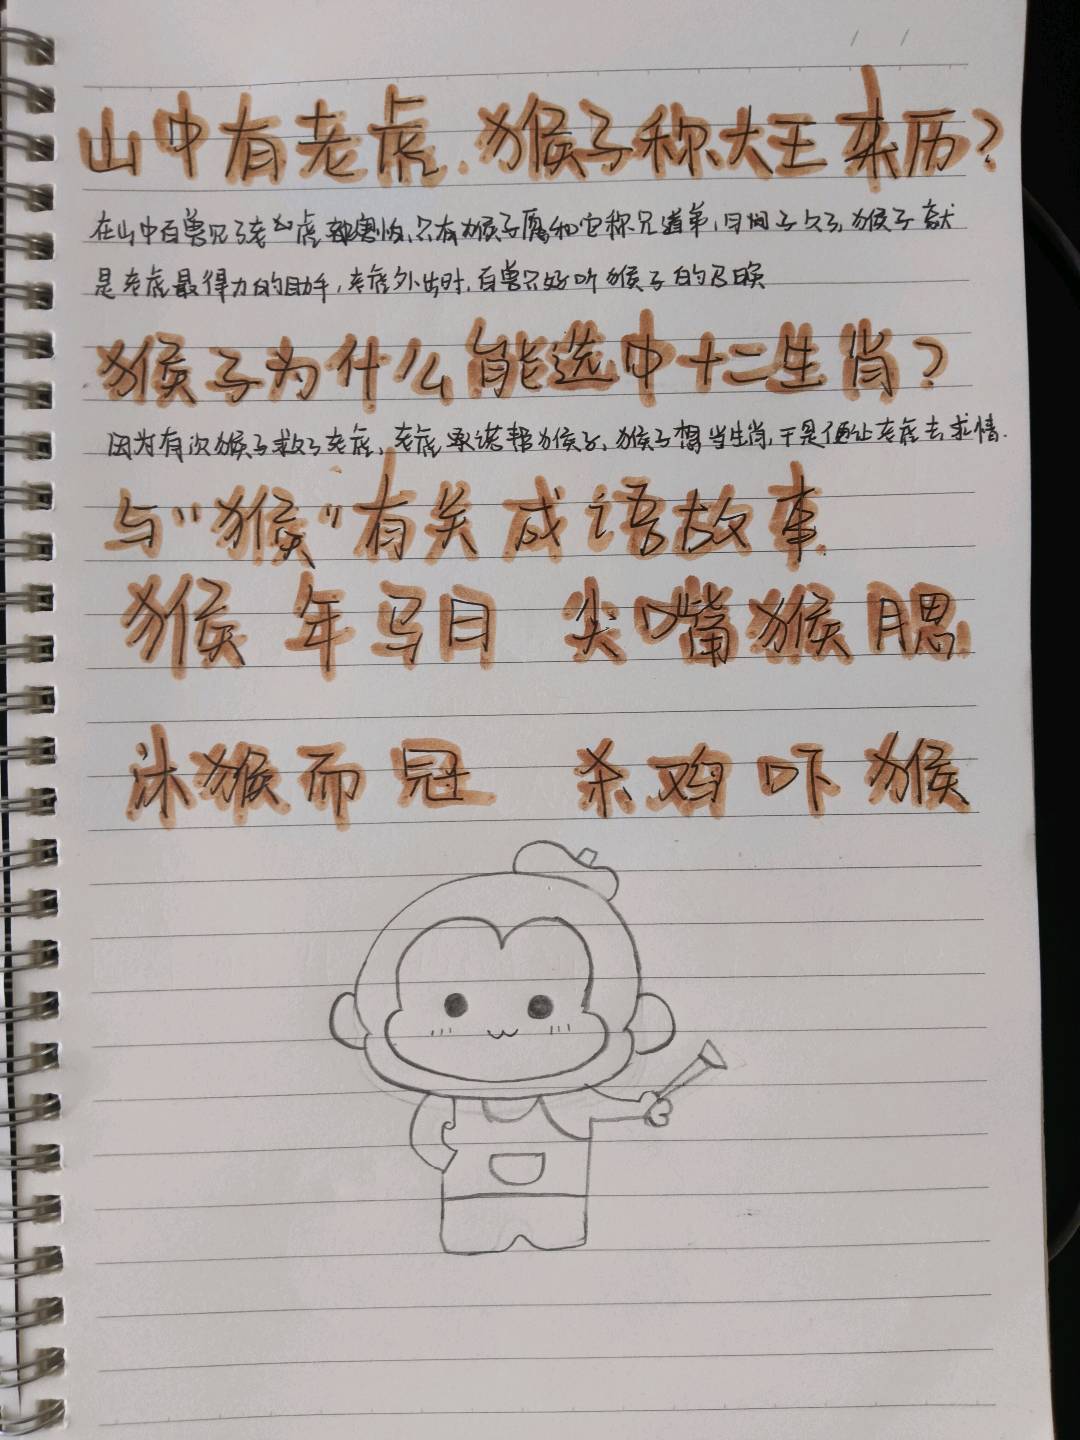 山中有老虎.猴子称大王来历?
在山中百兽见了老虎都害怕,只有猴子愿和它称兄道弟,时间子久了,猴子就
是老虎最得力的助手,老虎外出时,百兽只好听猴子的召唤
猴子为什么能选中十二生肖?
因为有次猴子救了老虎,老虎承诺帮猴子,猴子想当生肖,于是便让老虎去求情.
与"猴"有关成语故事.
猴年马日 尖嘴猴腮
沐猴而冠 杀鸡吓猴